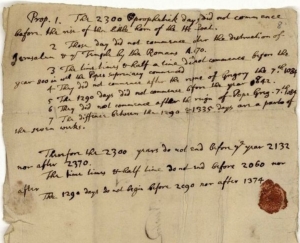 Prop. 1. The 2300 prophetick days did not commence
before the rise of the little horn of the He Goat.
2 Those day did not commence after the destruction of
Jerusalem & ye Temple by the Romans A.70.
3 The time times & half a time did not commence before the
year 800 in wch the Popes supremacy commenced
4 They did not commence after the reigne of Gregory the 7th. 1084
5 The 1290 days did not commence before the year 842.
6 They did not commence after the reigne of Pope Greg. 7th. 1084
7 The difference between the 1290 & 1335 days are a parts of
the seven weeks.
Therefore the 2300 years do not end before ye year 2132
nor after 2370.
The time times & half time do not end before 2060 nor
after
The 1290 days do not begin before 2090 nor after 1374